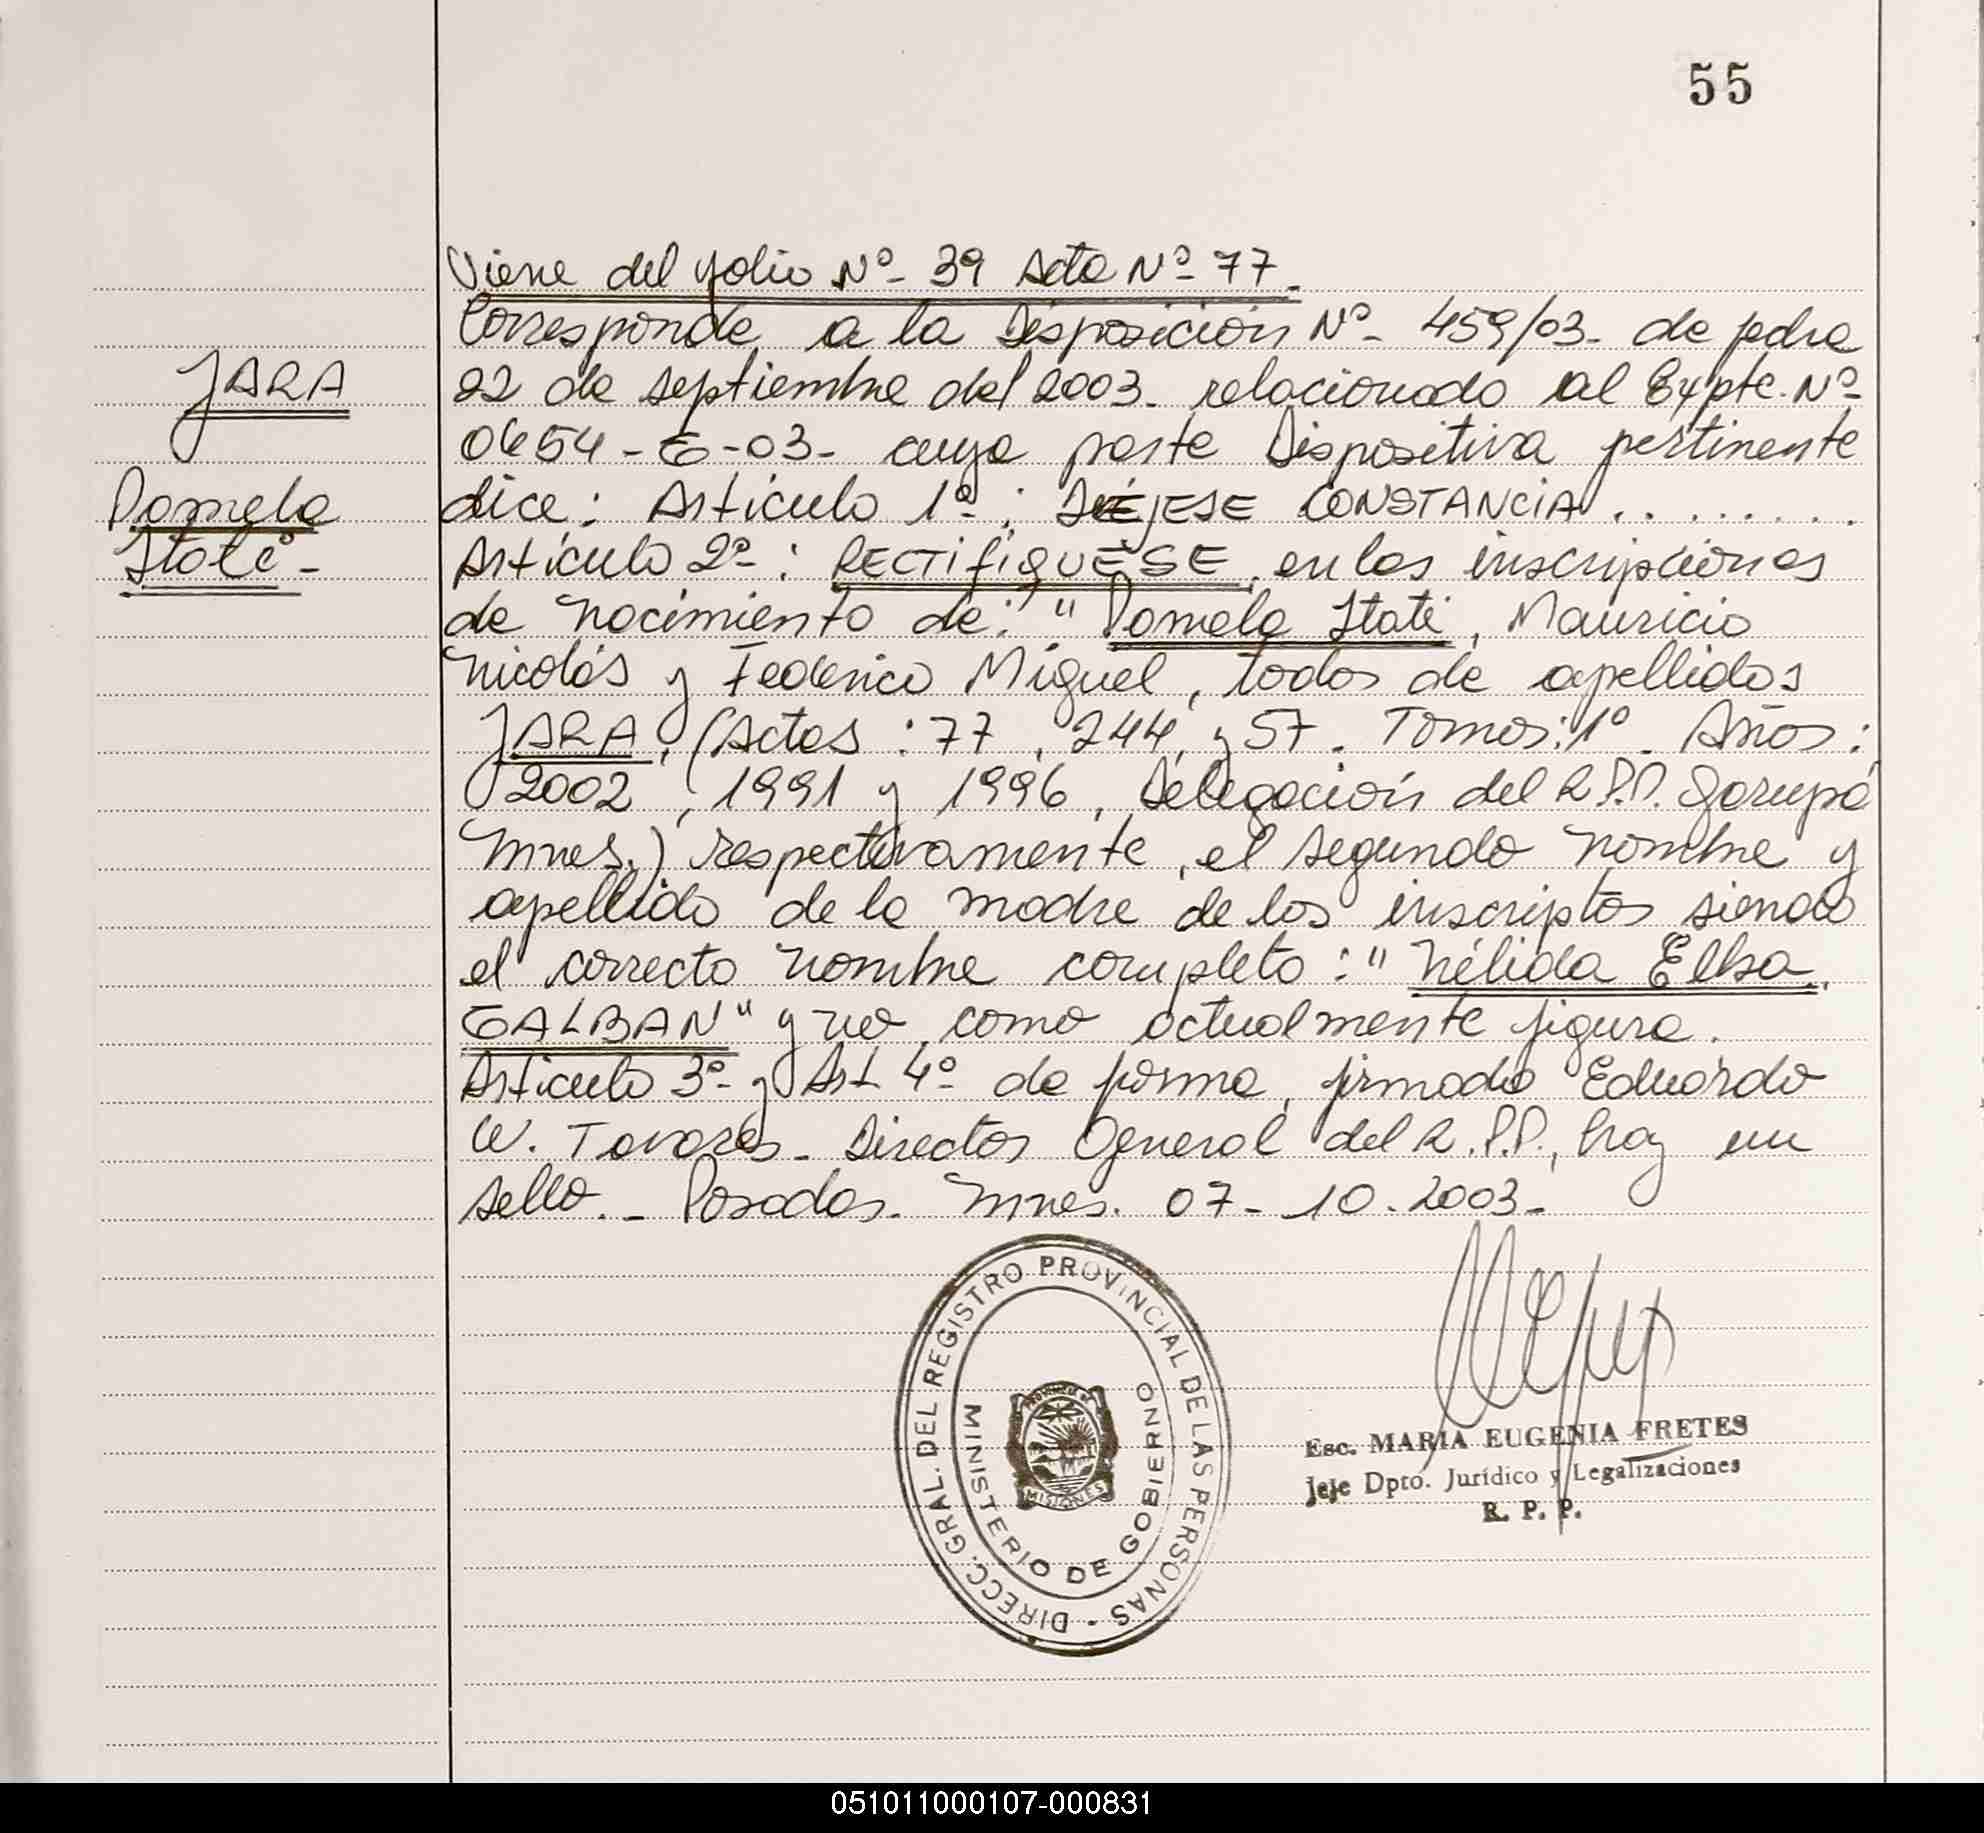 55
Viene del folio Nº- 39 Acta Nº- 77.
Corresponde a la Disposición Nº- 459/03- de fecha
JARA
22 de septiembre del 2003- relacionado al Expte. Nº-
0654-G-03- cuya parte Dispositiva pertinente
Pamela
dice: Artículo 1º-: DÉJESE CONSTANCIA. . . . . . . .
Itatí-
Artículo 2º-: RECTIFIQUÉSE, en las inscripciones
de nacimiento de: "Pamela Itatí, Mauricio
Nicolás y Federico Miguel, todos de apellidos
JARA, (Actas: 77, 244, y 57. Tomos: 1º. Años:
2002, 1991 y 1996, Delegación del R.P.P. Garupá
Mnes.) respectivamente, el segundo nombre y
apellido de la madre de los inscriptos siendo
el correcto nombre completo: "Nélida Elba
GALBAN" y no como actualmente figura.
Artículo 3º- y Art 4º- de forma, firmado Eduardo
W. Tavares- Director General del R.P.P., hay un
sello.- Posadas. Mnes. 07-10-2003-
DIRECC. GRAL. DEL REGISTRO PROVINCIAL DE LAS PERSONAS -
MINISTERIO DE GOBIERNO
MISIONES
Esc. MARIA EUGENIA FRETES
Jefe Dpto. Jurídico y Legalizaciones
R. P. P.
051011000107-000831